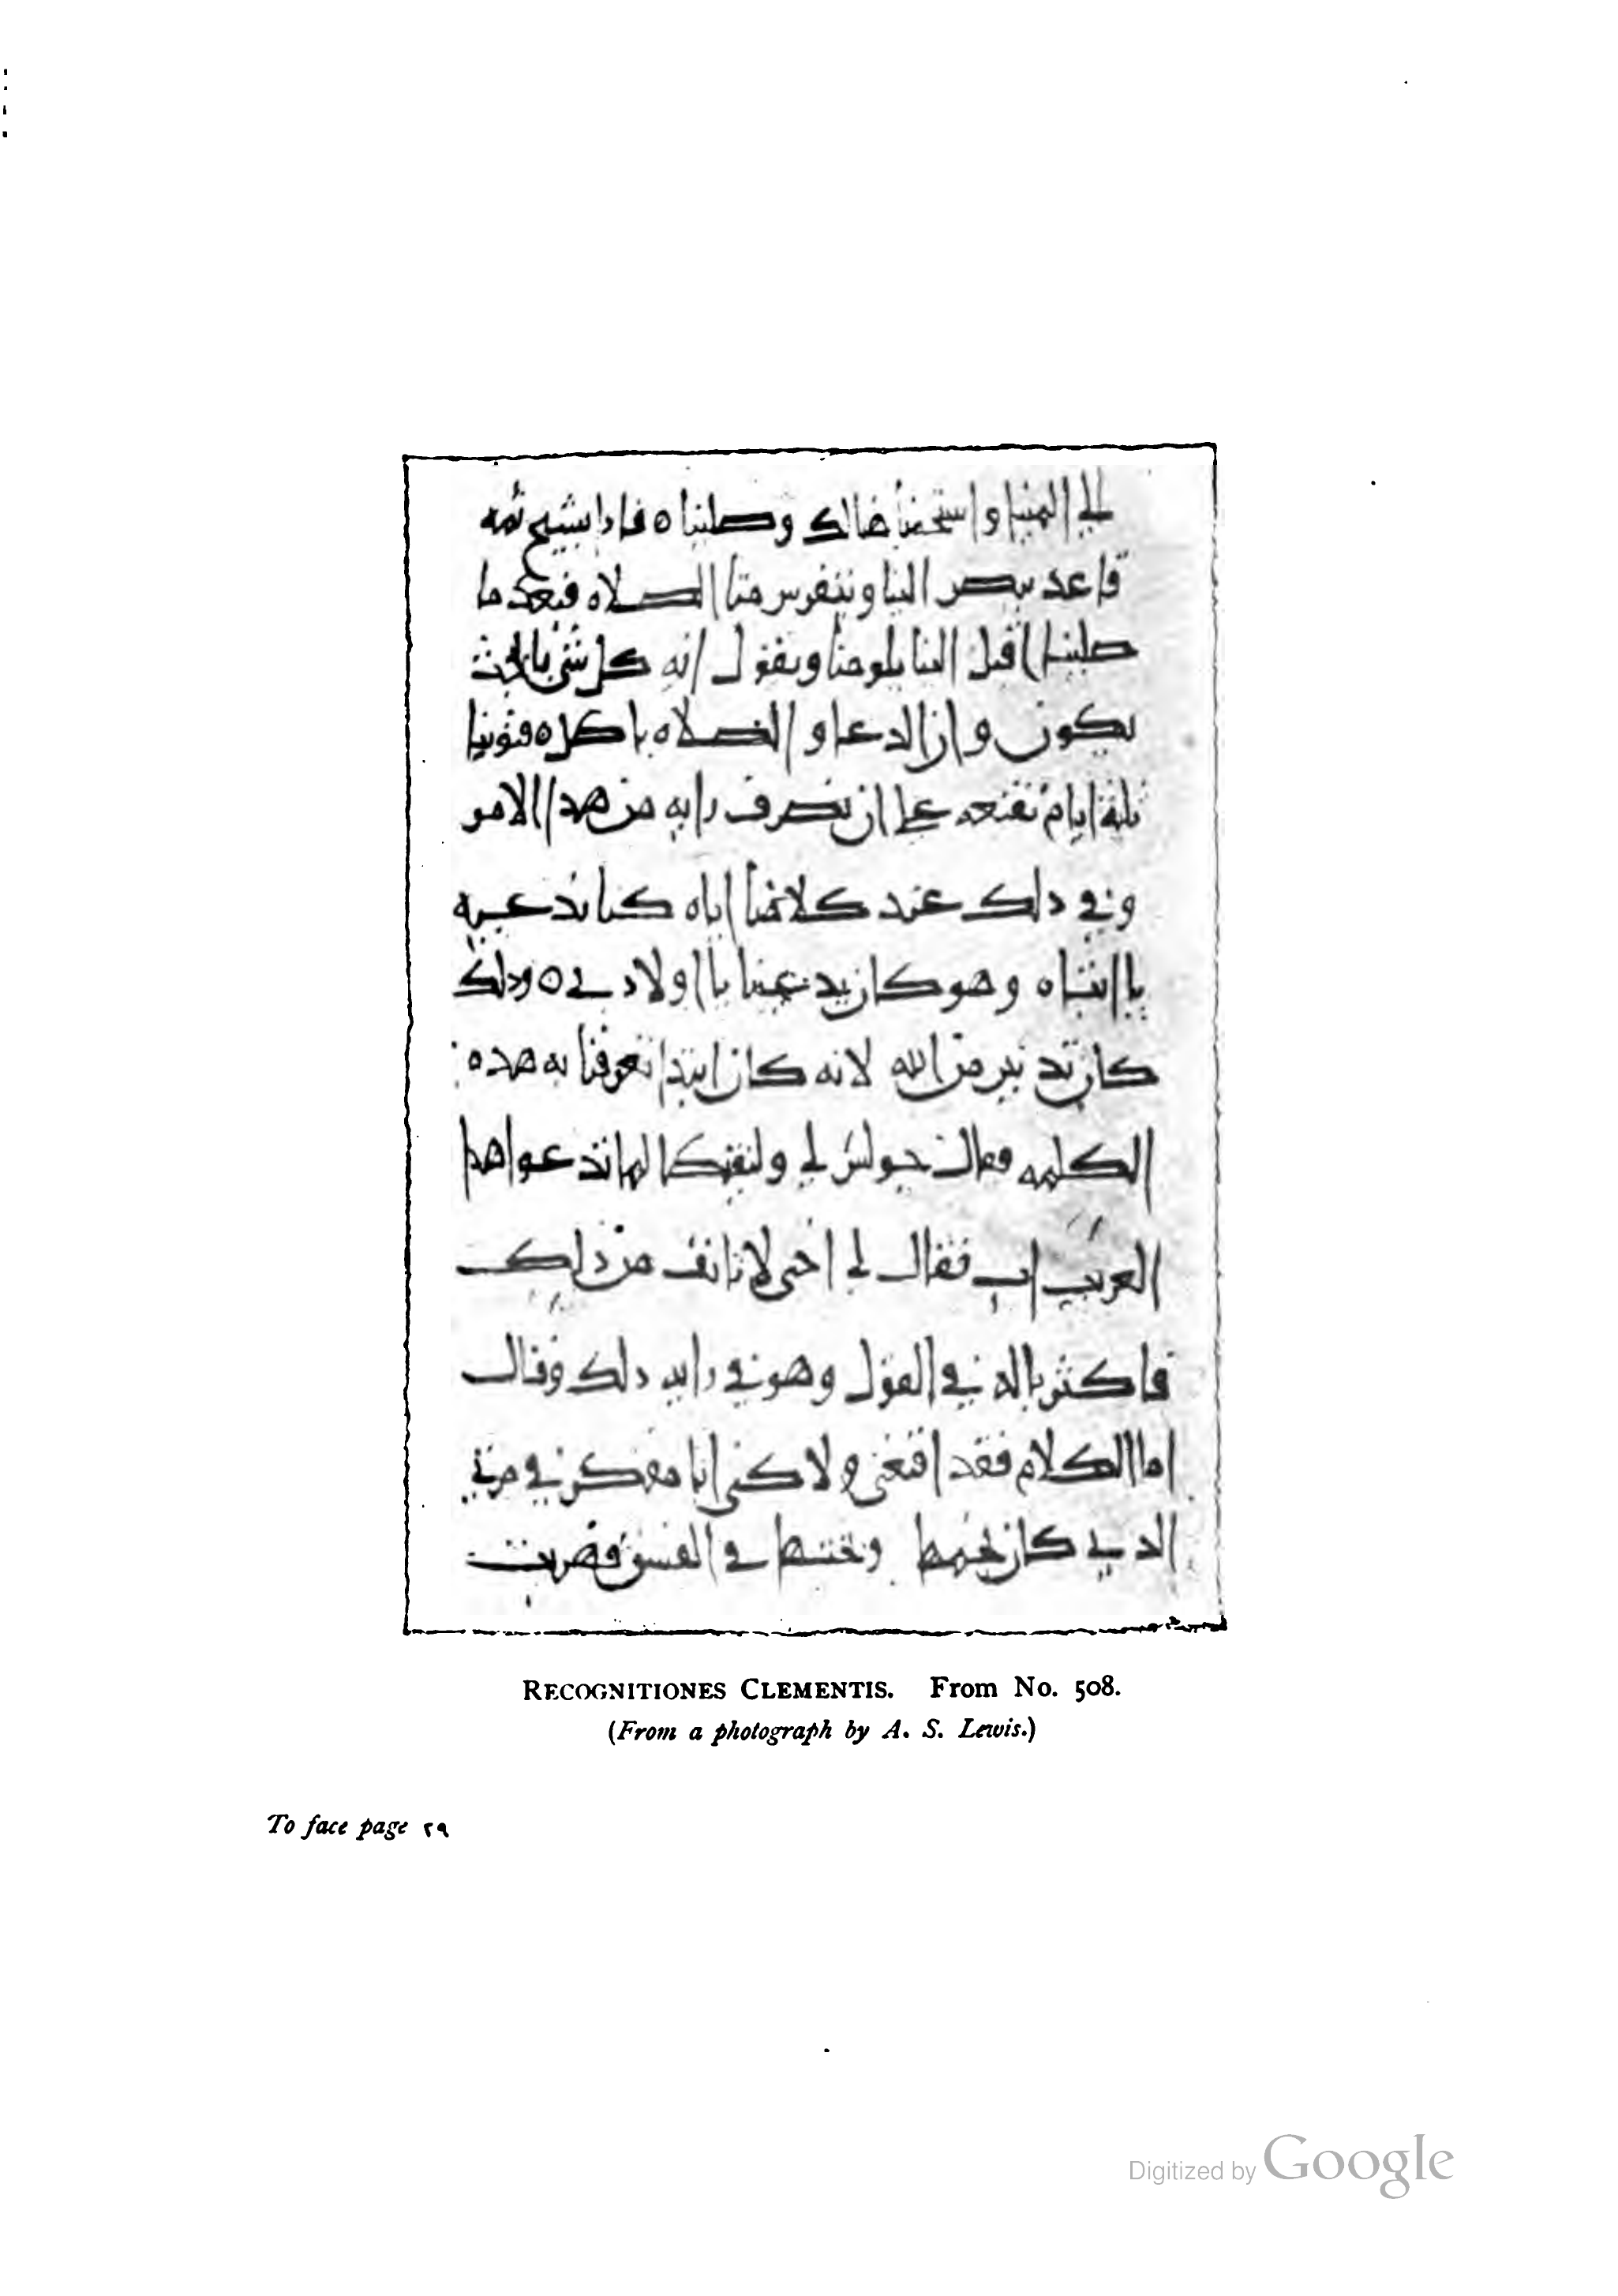 الى المينا واستحمينا هنالك وصلينا ه فاذا بشيخ ثمه
قاعد يبصر الينا ويتفرس منا الصلاه فبعد ما
صلينا اقبل الينا يلومنا ويقول انه كل شي بالبخت
يكون وان الدعا والصلاه باطله ه
ثلثة ايام نقنعه على ان يصرف رايه من هدا الامو
وفي دلك عند كلامنا اياه كنا ندعيه
يا ابتاه وهو كان يدعينا يا اولادي ه ودلك
كان تدبير من الله لانه كان ابتدا تعرفنا به هده
الكلمه فقال لي ولنقيطا لما تدعوا هدا
الغريب اب فقال لي اخي لا تانف من ذلك
فاكثر بالد في القول وهو في رايه دلك وقال
اما الكلام فقد اقنعني ولاكني انا مفكر في مرتي
الدي كان
RECOGNITIONES CLEMENTIS. From No. 508.
(From a photograph by A. S. Lewis.)
To face page ٢٩
Digitized by Google